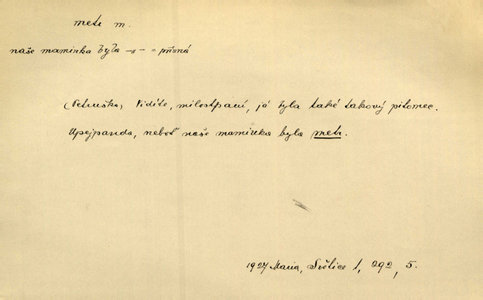 metr m.
naše maminka byla -"- = přísná
Petruška, Vidíte, milostpaní, já byla také takový pitomec.
Upejpanda, neboť naše maminka byla metr.
1927 Maria, Světice 1, 292, 5.